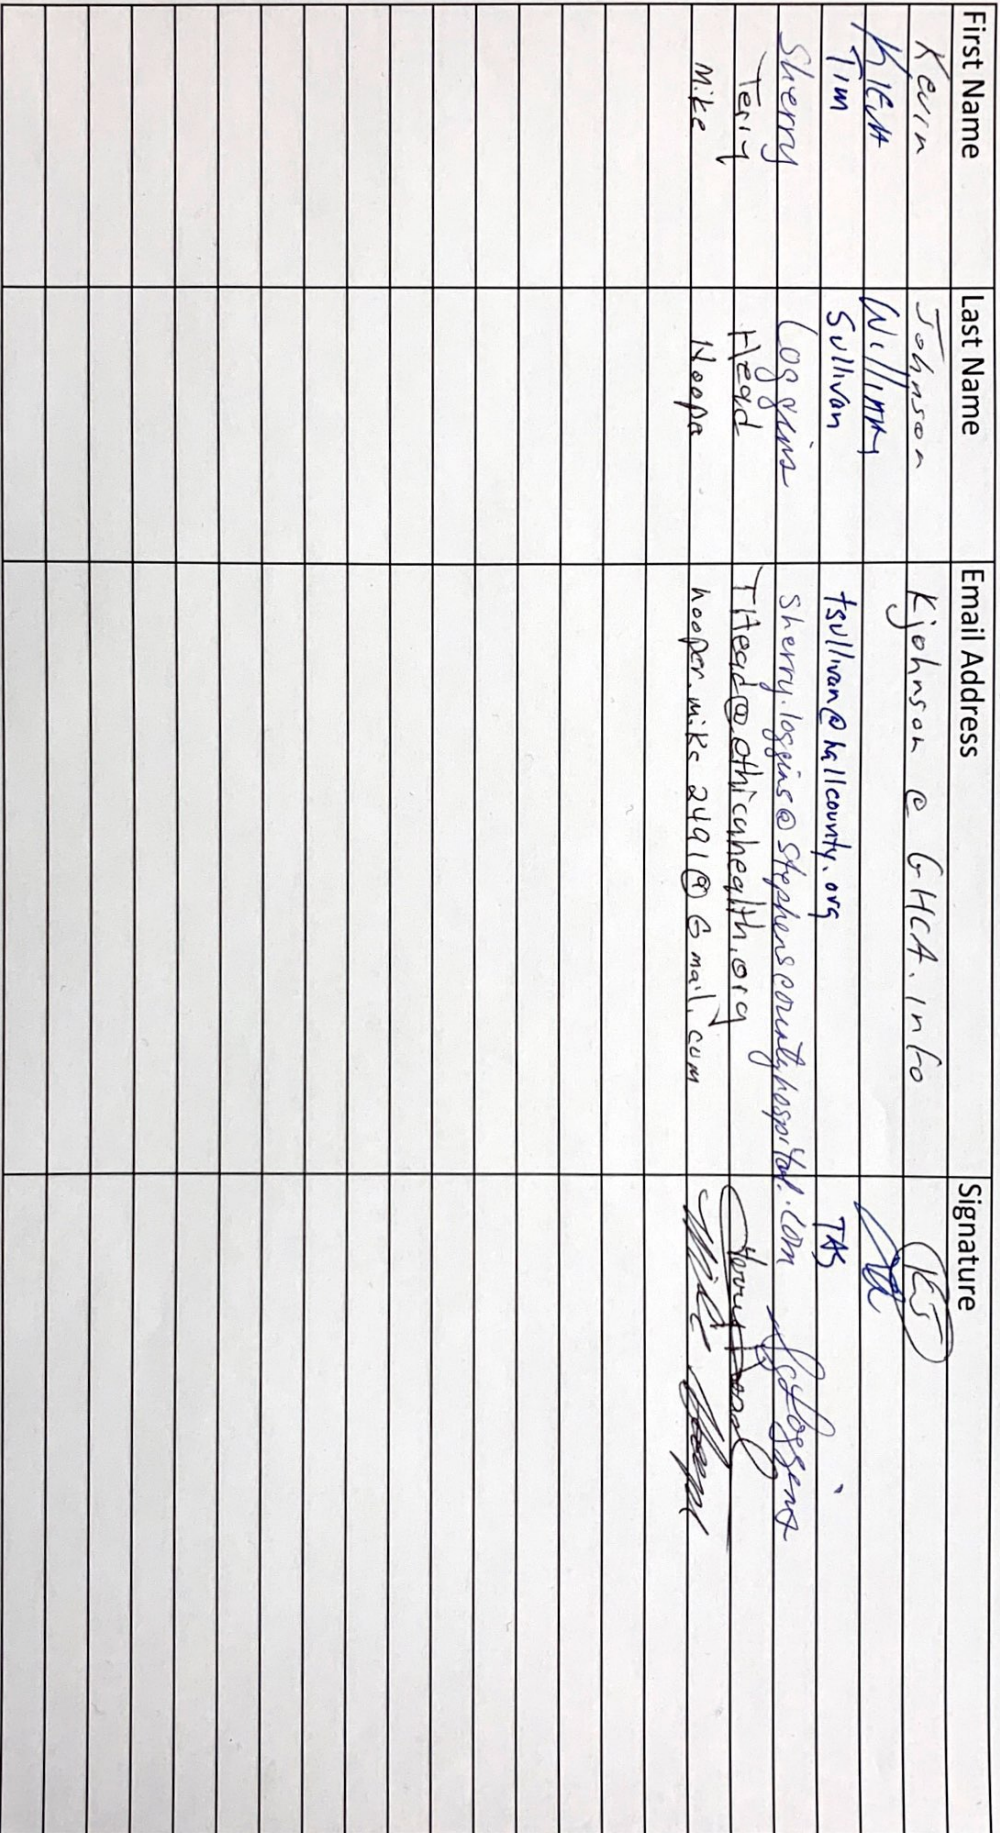 First Name Last Name Email Address Signature
Kevin Johnson Kjohnson @ GHCA.info KJ
Keith Williams
Tim Sullivan tsullivan@hallcounty.org TAS
Sherry Loggins sherry.loggins@stephenscountyhospital.com
Terry Head THead@ethicahealth.org Terry Head
Mike Hooper hooper.mike2491@Gmail.com Mike Hooper